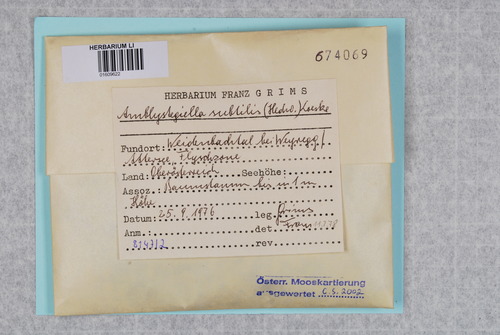 HERBARIUM LI
01609622
674069
HERBARIUM FRANZ GRIMS
Amblystegiella subtilis (Hedw.) Loeske
Fundort: Weidenbachtal bei Weyregg/
Attersee, Flyschzone
Land: Oberösterreich Seehöhe:
Assoz. Baumstamm bis in 1 m
Höhe
Datum: 25. 9. 1976 leg. Grims
Anm.: det. Grims
rev.
Österr. Mooskartierung
ausgewertet C.S. 2002